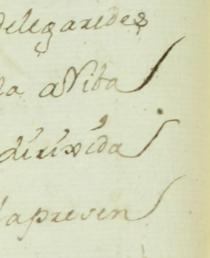 delegaredes
la aVita
dirixida
apresen